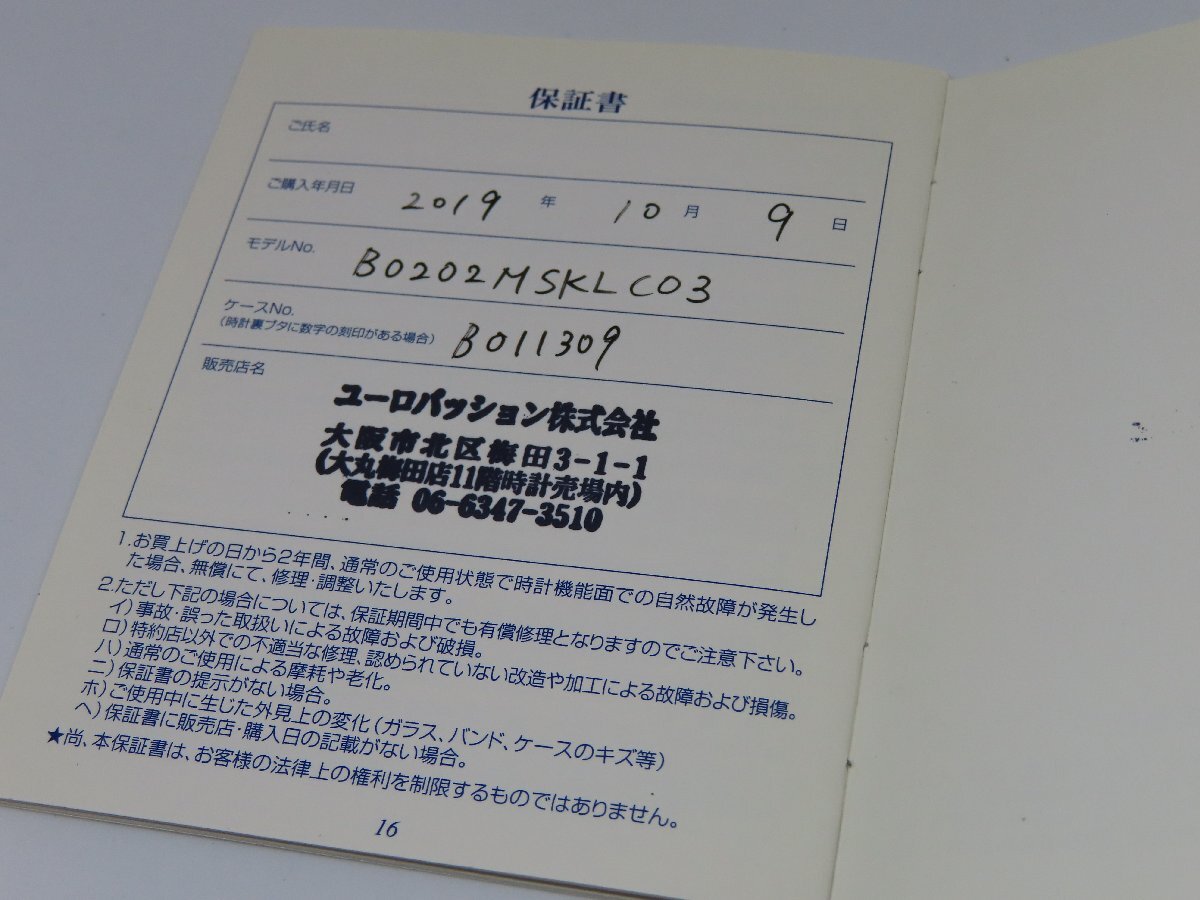 保証書
ご氏名
ご購入年月日 2019 年 10 月 9 日
モデルNo. B0202MSKLC03
ケースNo.
(時計裏ブタに数字の刻印がある場合) B011309
販売店名
ユーロパッション株式会社
大阪市北区梅田3-1-1
(大丸梅田店11階時計売場内)
電話 06-6347-3510
1.お買上げの日から2年間、通常のご使用状態で時計機能面での自然故障が発生し
た場合、無償にて、修理・調整いたします。
2.ただし下記の場合については、保証期間中でも有償修理となりますのでご注意下さい。
イ)事故・誤った取扱いによる故障および破損。
ロ)特約店以外での不適当な修理、認められていない改造や加工による故障および損傷。
ハ)通常のご使用による摩耗や老化。
ニ)保証書の提示がない場合。
ホ)ご使用中に生じた外見上の変化(ガラス、バンド、ケースのキズ等)
ヘ)保証書に販売店・購入日の記載がない場合。
★尚、本保証書は、お客様の法律上の権利を制限するものではありません。
16